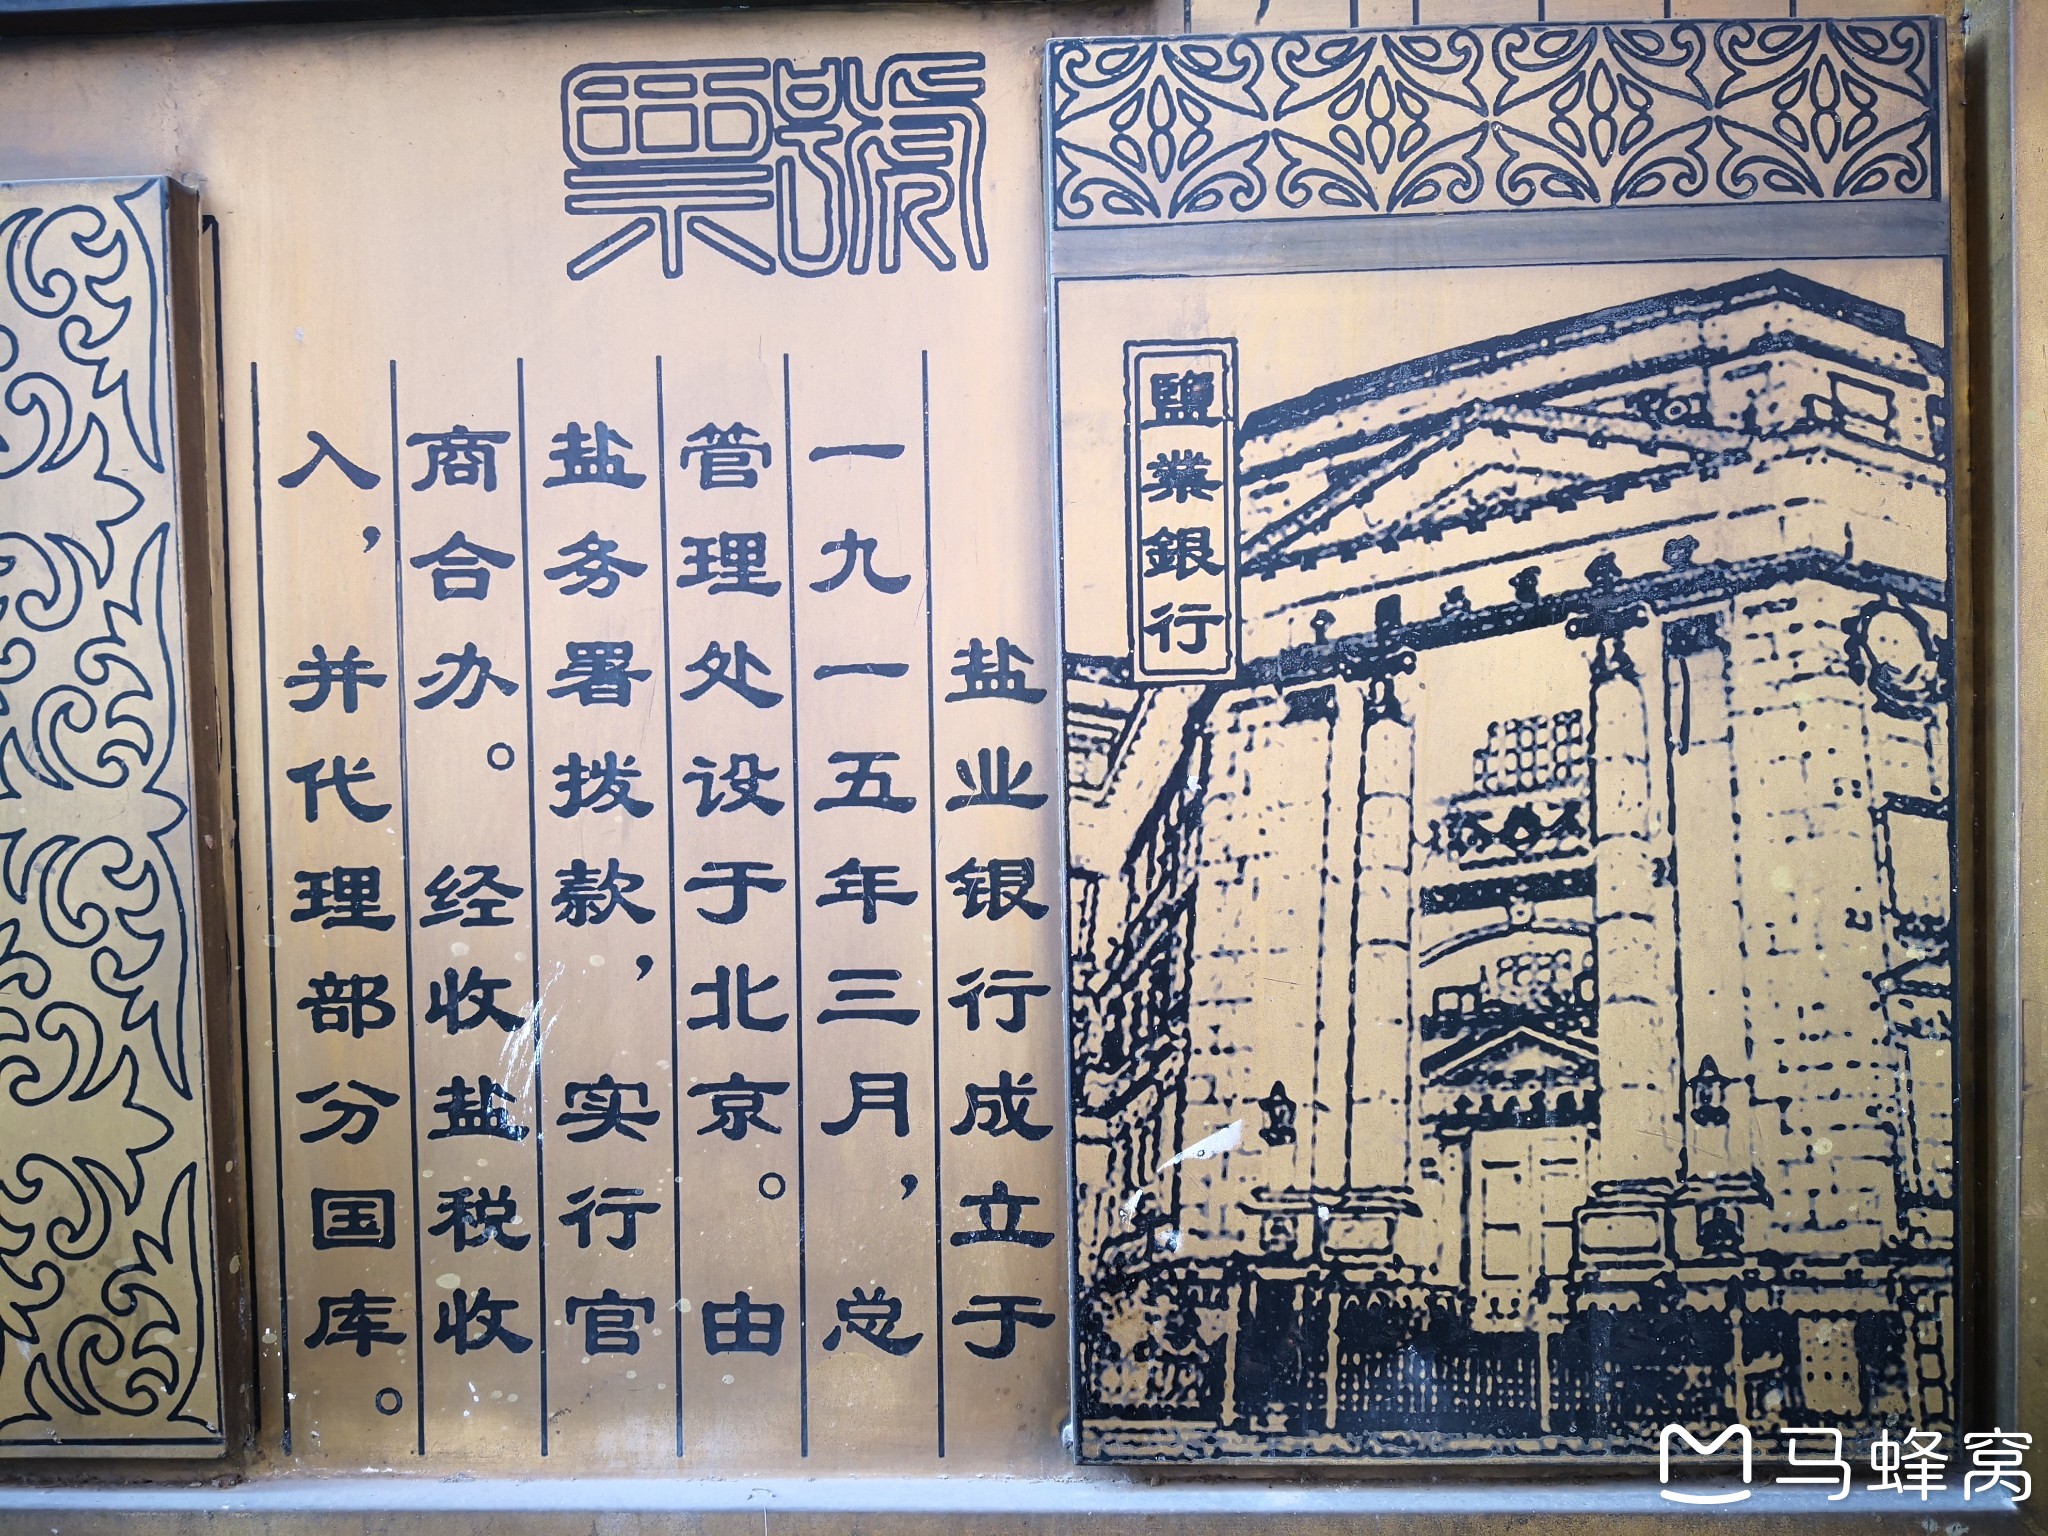 票號
鹽業銀行
盐业银行成立于
一九一五年三月，总
管理处设于北京。由
盐务署拨款，实行官
商合办。经收盐税收
入，并代理部分国库。
马蜂窝